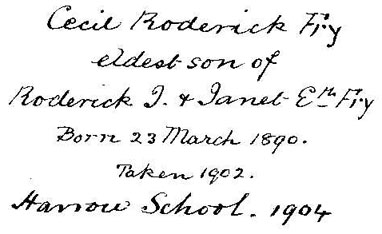 Cecil Roderick Fry
eldest son of
Roderick J. & Janet Eth Fry
Born 23 March 1890.
Taken 1902.
Harrow School. 1904